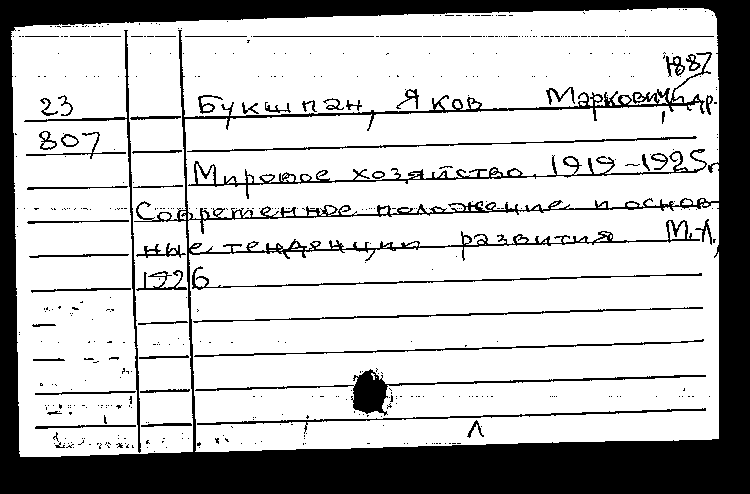 1887
23 Букшпан, Яков Маркович, и др.
807
Мировое хозяйство. 1919-1925г.
Современное положение и основ-
ные тенденции развития. М.-Л.,
1926
Л